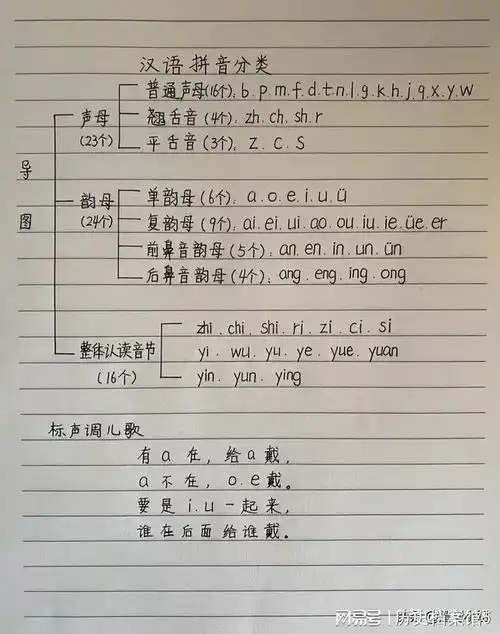 汉语拼音分类
普通声母(16个): b.p.m.f.d.t.n.l.g.k.h.j.q.x.y.w
声母 翘舌音(4个): zh.ch.sh.r
(23个) 平舌音(3个): z.c.s
导图
单韵母(6个): a.o.e.i.u.ü
韵母 复韵母(9个): ai.ei.ui.ao.ou.iu.ie.üe.er
(24个) 前鼻音韵母(5个): an.en.in.un.ün
后鼻音韵母(4个): ang.eng.ing.ong
zhi.chi.shi.ri.zi.ci.si
整体认读音节 yi.wu.yu.ye.yue.yuan
(16个) yin.yun.ying
标声调儿歌
有a在,给a戴,
a不在,o.e戴。
要是i.u一起来,
谁在后面给谁戴。